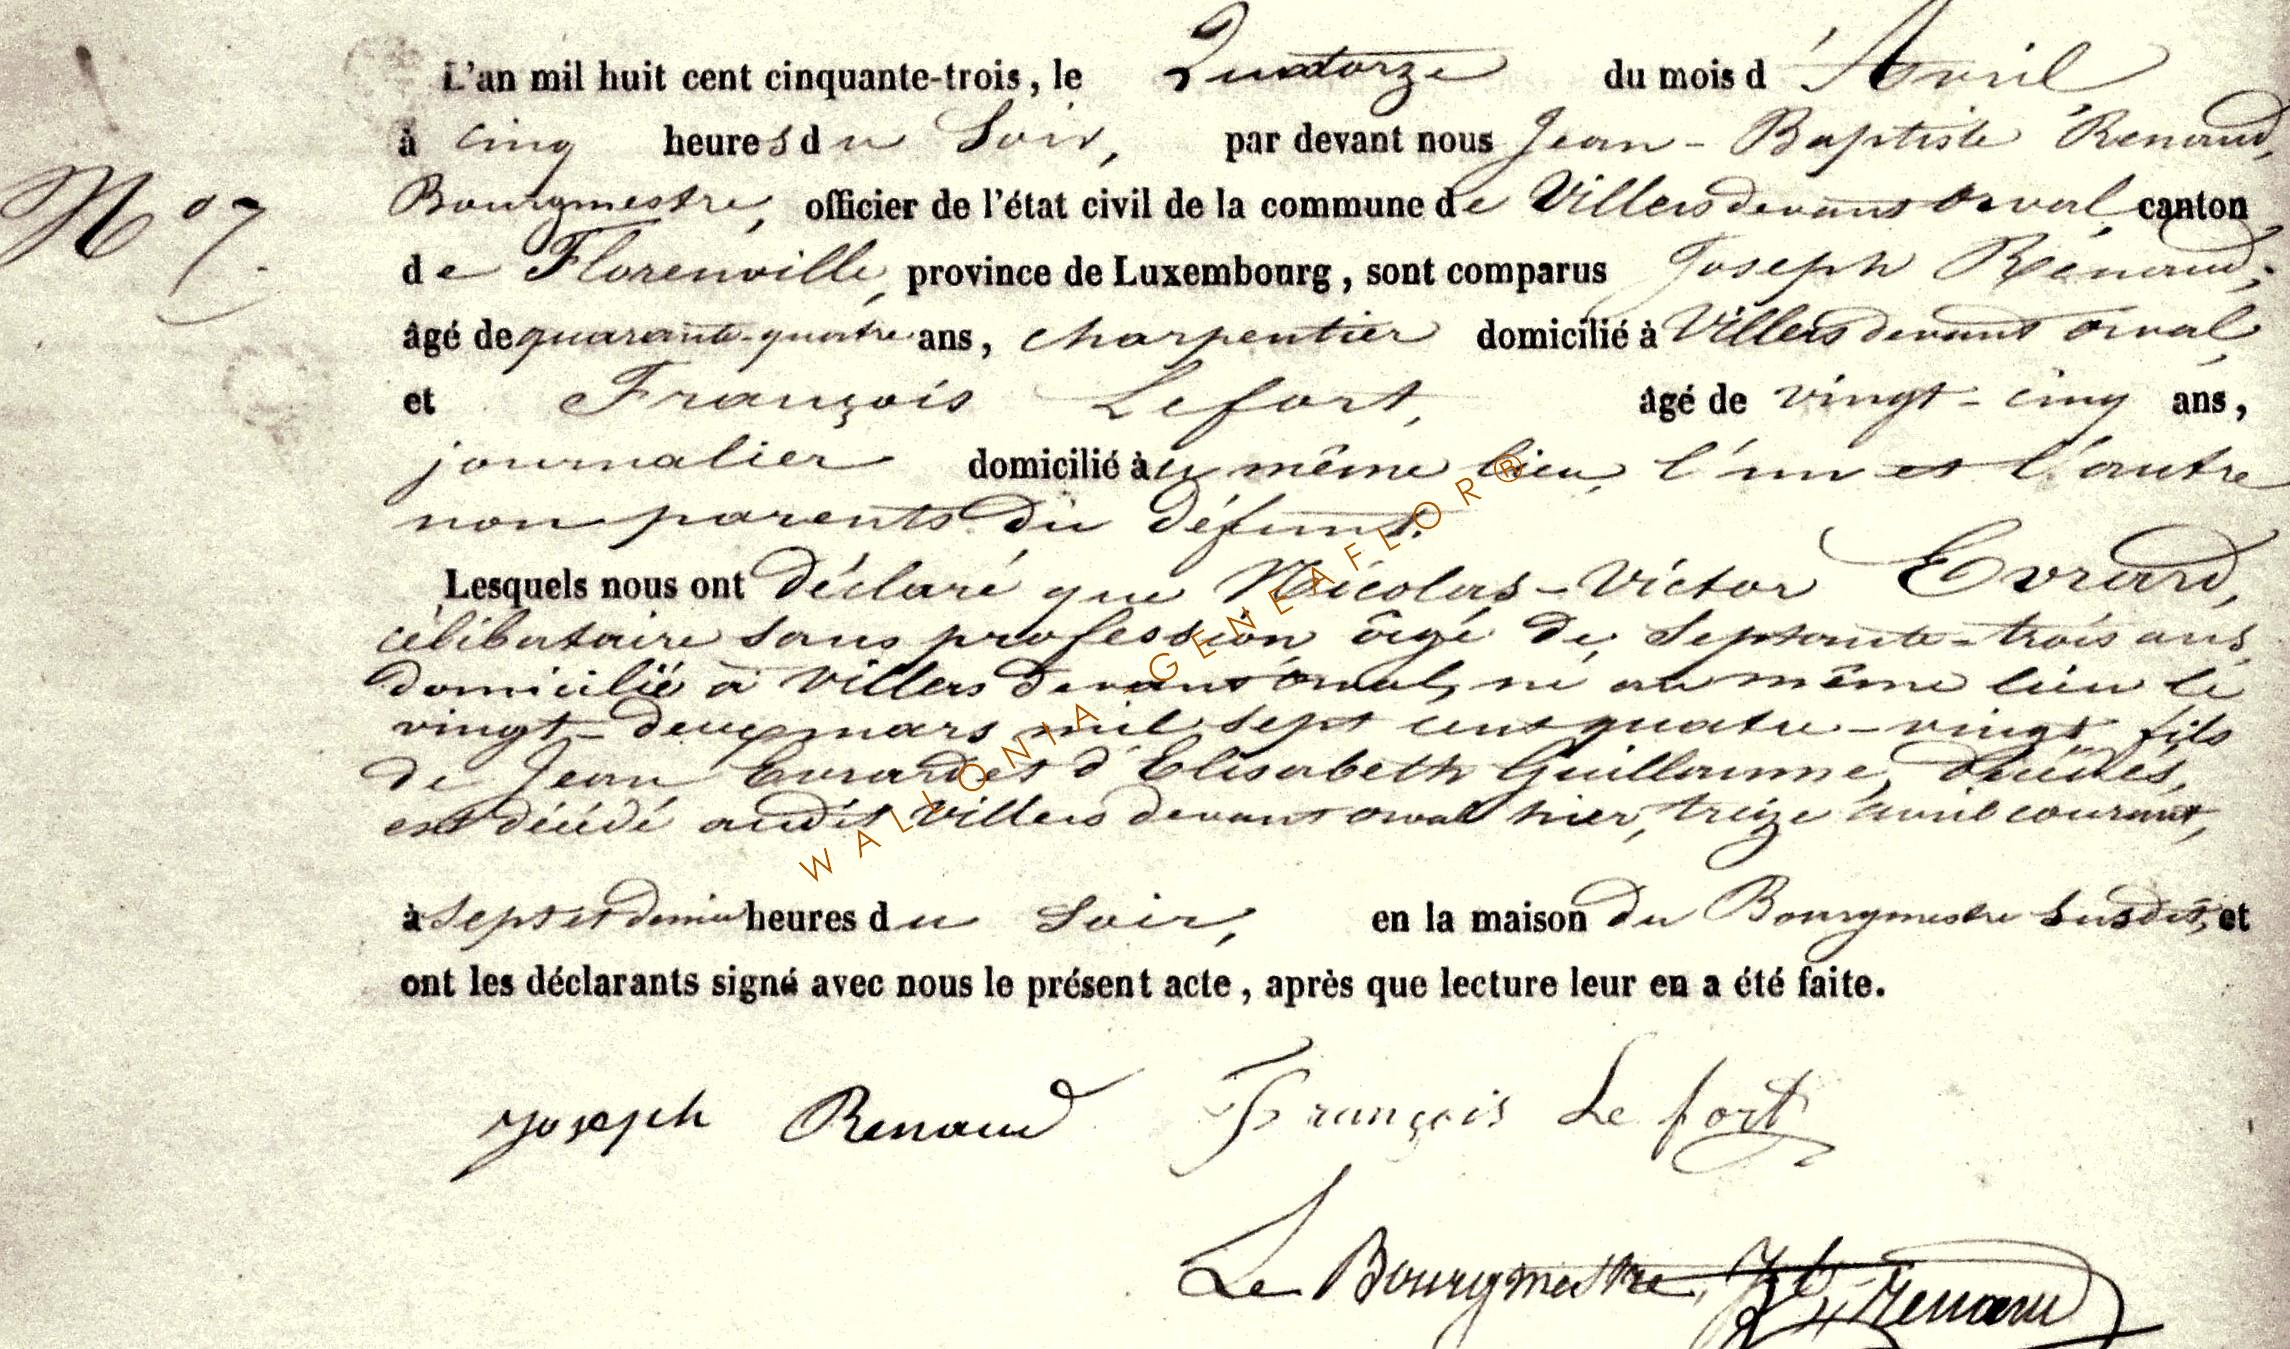 L'an mil huit cent cinquante-trois, le Quatorze du mois d'Avril
à cinq heures du Soir, par devant nous Jean-Baptiste Renaud,
N° 7.
Bourgmestre, officier de l'état civil de la commune de Villers devant Orval, canton
de Florenville, province de Luxembourg, sont comparus Joseph Rénaud,
âgé de quarante-quatre ans, charpentier domicilié à Villers devant orval,
et François Lefort, âgé de vingt-cinq ans,
journalier domicilié au même lieu, l'un et l'autre
non parents du défunt.
Lesquels nous ont déclaré que Nicolas-Victor Evrard,
célibataire sans profession âgé de septante-trois ans,
domicilié à Villers devant Orval, né au même lieu le
vingt-deux mars mil sept cent quatre-vingt fils
de Jean Evrard et d'Elisabeth Guillaume, décédés,
est décédé audit Villers devant orval hier, treize avril courant,
à sept et demie heures du Soir, en la maison du Bourgmestre susdit, et
ont les déclarants signé avec nous le présent acte, après que lecture leur en a été faite.
Joseph Renaud François Le fort
Le Bourgmestre, JB Renaud
WALLONIA-GENEAFLOR®